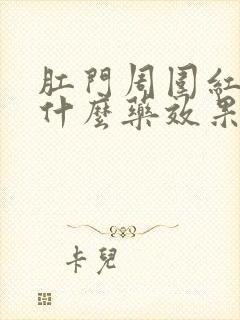 肛門周圍紅
什麼藥效果
卡兒